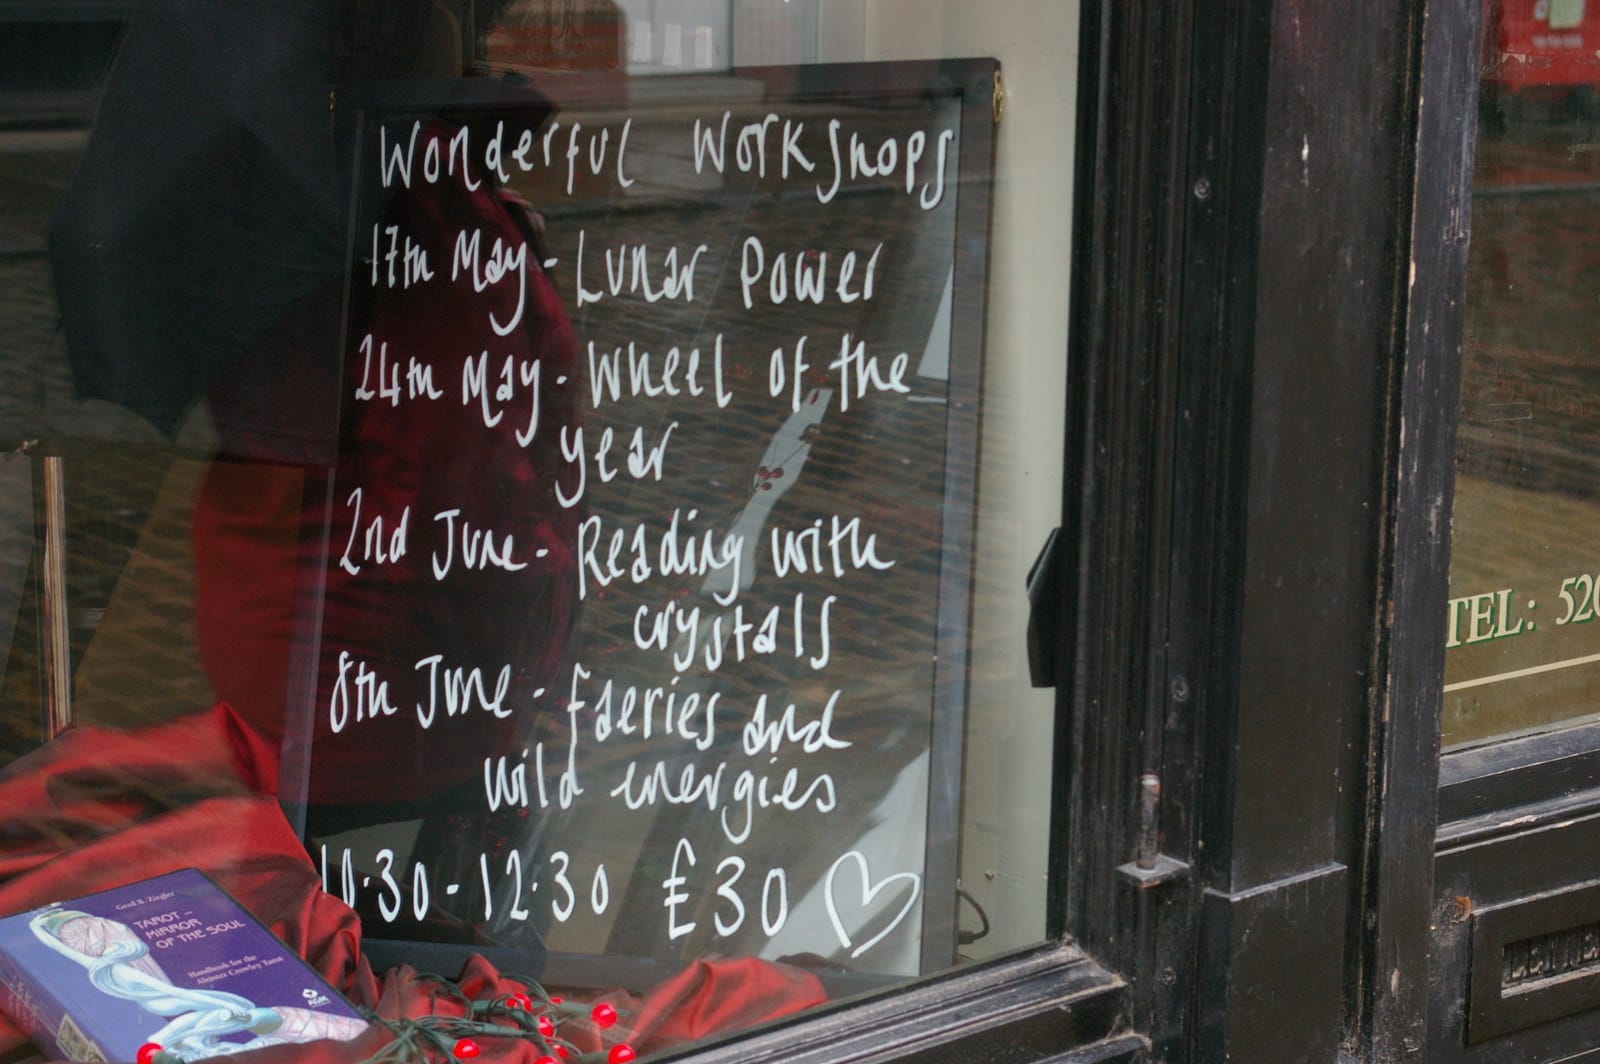 Wonderful Workshops
17th May - Lunar Power
24th May - Wheel of the
year
2nd June - Reading with
crystals
8th June - faeries and
wild energies
10.30 - 12.30 £30
Gerd B. Ziegler
TAROT -
MIRROR
OF THE SOUL
Handbook for the
Aleister Crowley Tarot
AGM
TEL: 520